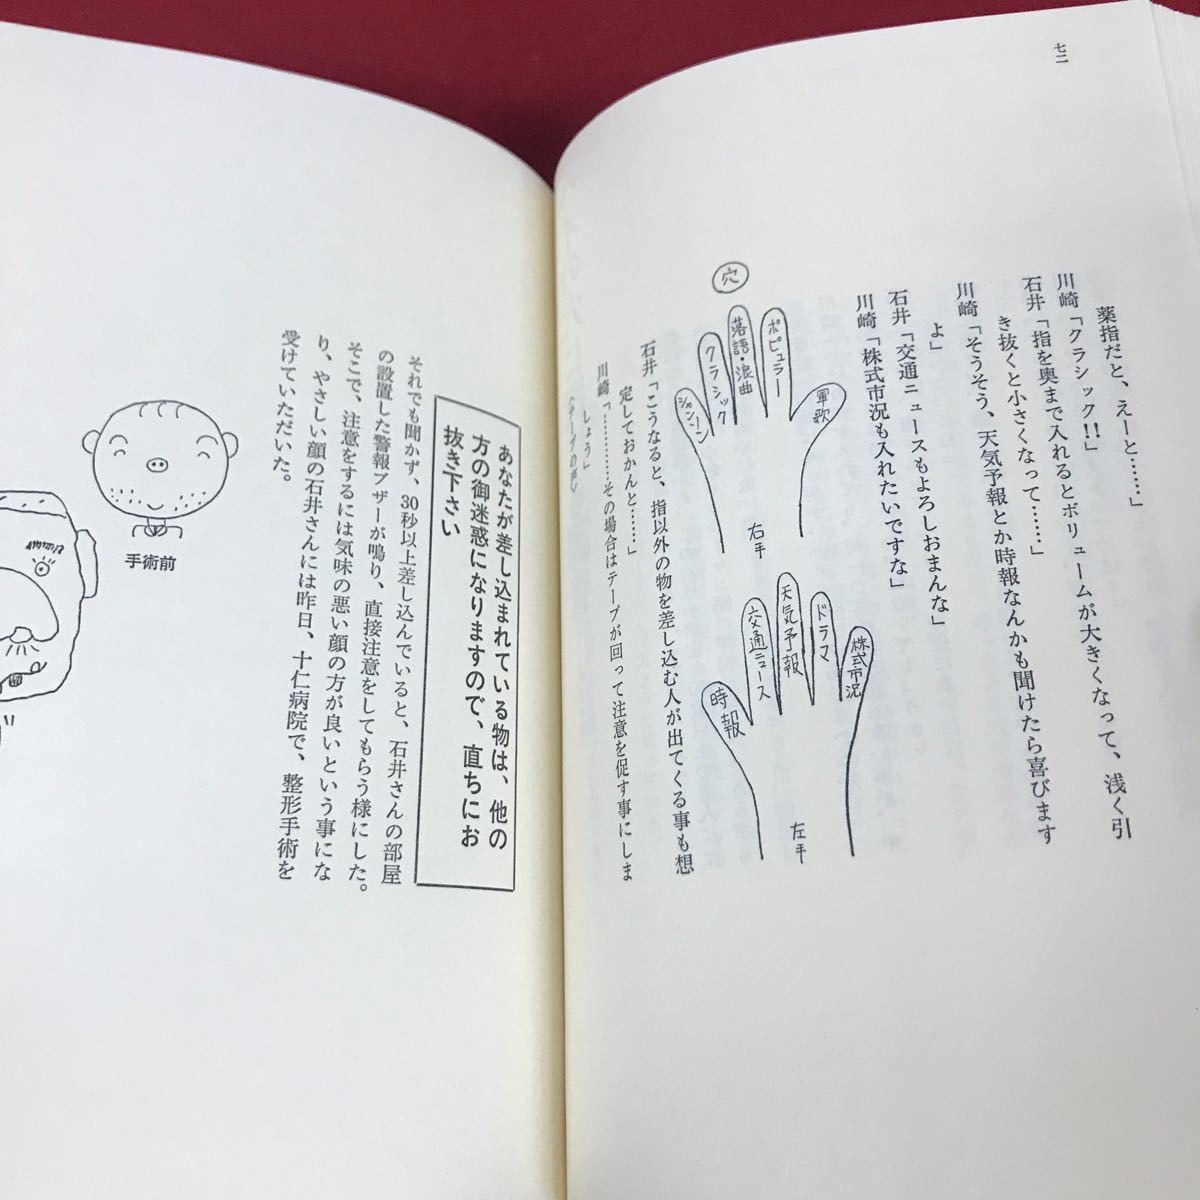 七二
薬指だと、えーと……」
川崎「クラシック!!」
石井「指を奥まで入れるとボリュームが大きくなって、浅く引
き抜くと小さくなって……」
川崎「そうそう、天気予報とか時報なんかも聞けたら喜びます
よ」
石井「交通ニュースもよろしおまんな」
川崎「株式市況も入れたいですな」
穴
軍歌
ポピュラー
落語・浪曲
クラシック
シャンソン
右手
株式市況
ドラマ
天気予報
交通ニュース
時報
左手
石井「こうなると、指以外の物を差し込む人が出てくる事も想
定しておかんと……」
川崎「………その場合はテープが回って注意を促す事にしま
しょう」
〈テープの声〉
あなたが差し込まれている物は、他の
方の御迷惑になりますので、直ちにお
抜き下さい
それでも聞かず、30秒以上差し込んでいると、石井さんの部屋
の設置した警報ブザーが鳴り、直接注意をしてもらう様にした。
そこで、注意をするには気味の悪い顔の方が良いという事にな
り、やさしい顔の石井さんには昨日、十仁病院で、整形手術を
受けていただいた。
手術前